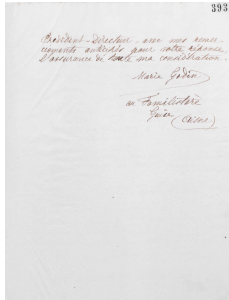 393
Président-Directeur, avec mes remer-
ciements anticipés pour votre réponse,
l'assurance de toute ma considération.
Marie Godin
au Familistère
Guise
(Aisne)